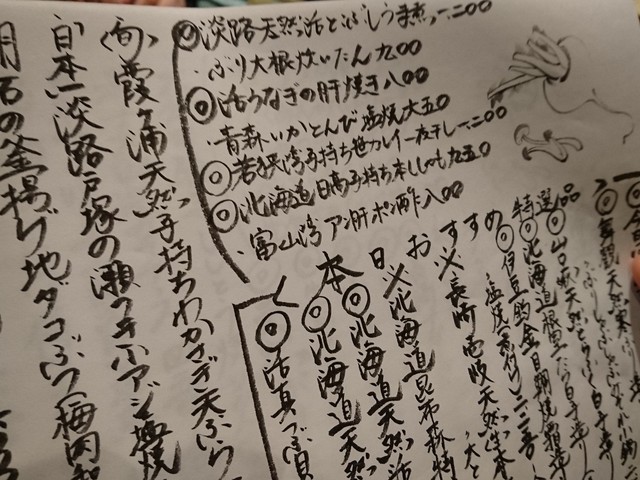 舞鶴天然寒ぶり
特選品
◎山口県天然とらふぐ白子造り
◎北海道根室たら白子造り
◎伊豆釣金目鯛焼霜造り
塩焼(煮付)
おすすめ
※長崎壱岐天然生本
※北海道昆布森特
本日
◎北海道天然活
◎北海道天然
◎活真つぶ貝
◎淡路天然活とびしうま煮一二〇〇
・ぶり大根炊いたん九〇〇
◎活うなぎの肝焼き八〇〇
・青森いかとんび塩焼六五〇
◎若狭湾子持ち笹カレイ一夜干し一二〇〇
◎北海道日高子持ち本ししゃも九五〇
・富山湾アン肝ポン酢八〇〇
霞ヶ浦天然子持ちわかさぎ天ぷら
日本一淡路戸塚の瀬つき小アジ塩焼
明石の釜揚げ地ダコぶつ(梅肉